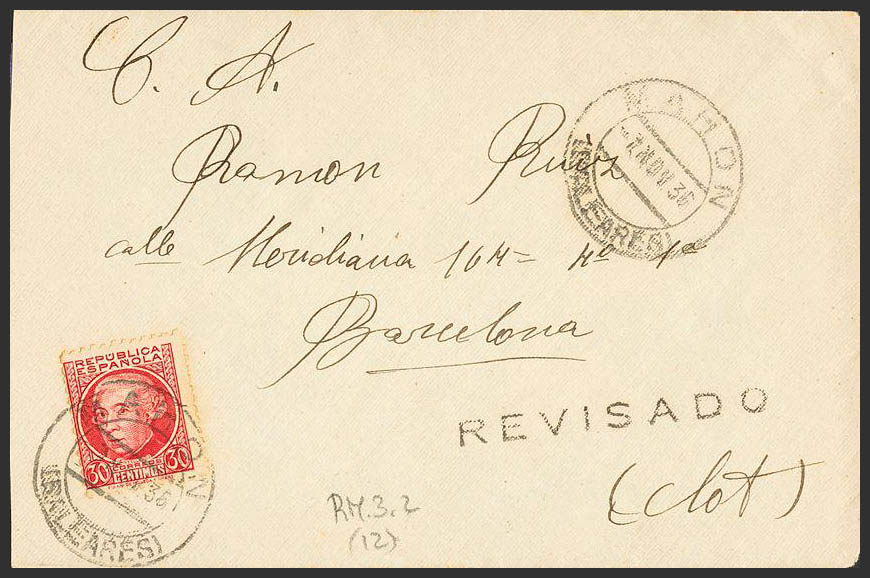 C. A.
Ramon Ruiz
calle Meridiana 164= 4º 1ª
Barcelona
REVISADO
(Clot)
MAHON
7.NOV.36
(BALEARES)
REPÚBLICA
ESPAÑOLA
30 CORREOS 30
CENTIMOS
MAHON
36
(BALEARES)
RM.3.2
(12)